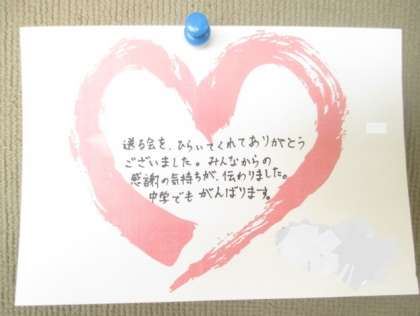 送る会を、ひらいてくれてありがとう
ございました。みんなからの
感謝の気持ちが、伝わりました。
中学でもがんばります。